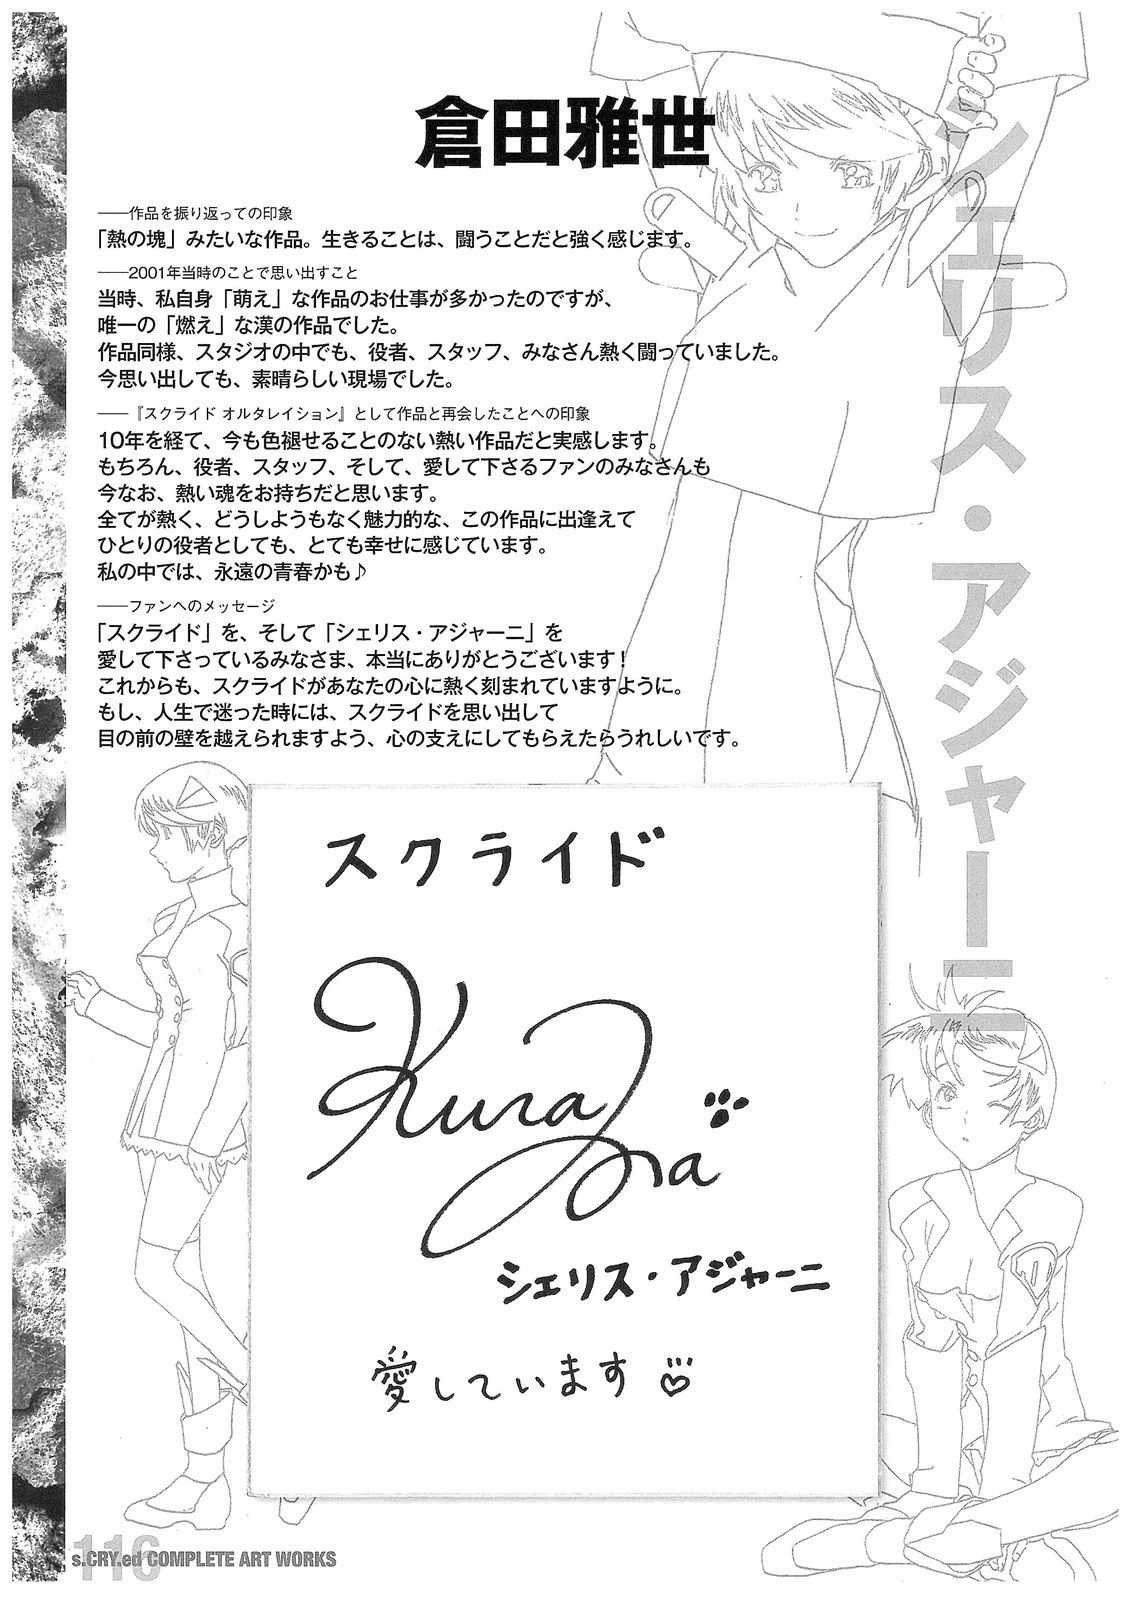 倉田雅世
シェリス・アジャーニ
――作品を振り返っての印象
「熱の塊」みたいな作品。生きることは、闘うことだと強く感じます。
――2001年当時のことで思い出すこと
当時、私自身「萌え」な作品のお仕事が多かったのですが、
唯一の「燃え」な漢の作品でした。
作品同様、スタジオの中でも、役者、スタッフ、みなさん熱く闘っていました。
今思い出しても、素晴らしい現場でした。
――『スクライド オルタレイション』として作品と再会したことへの印象
10年を経て、今も色褪せることのない熱い作品だと実感します。
もちろん、役者、スタッフ、そして、愛して下さるファンのみなさんも
今なお、熱い魂をお持ちだと思います。
全てが熱く、どうしようもなく魅力的な、この作品に出逢えて
ひとりの役者としても、とても幸せに感じています。
私の中では、永遠の青春かも♪
――ファンへのメッセージ
「スクライド」を、そして「シェリス・アジャーニ」を
愛して下さっているみなさま、本当にありがとうございます！
これからも、スクライドがあなたの心に熱く刻まれていますように。
もし、人生で迷った時には、スクライドを思い出して
目の前の壁を越えられますよう、心の支えにしてもらえたらうれしいです。
スクライド
Kura
シェリス・アジャーニ
愛しています♡
116
s.CRY.ed COMPLETE ART WORKS